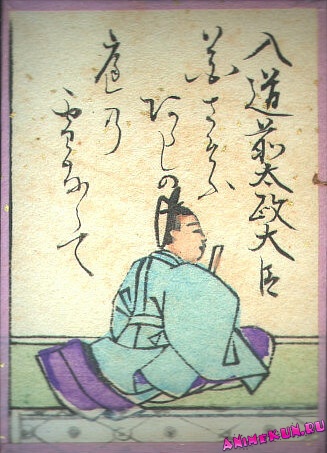 入道前太政大臣
花さそふ
あらしの
庭乃
雪ならて
ANIMEKUN.RU